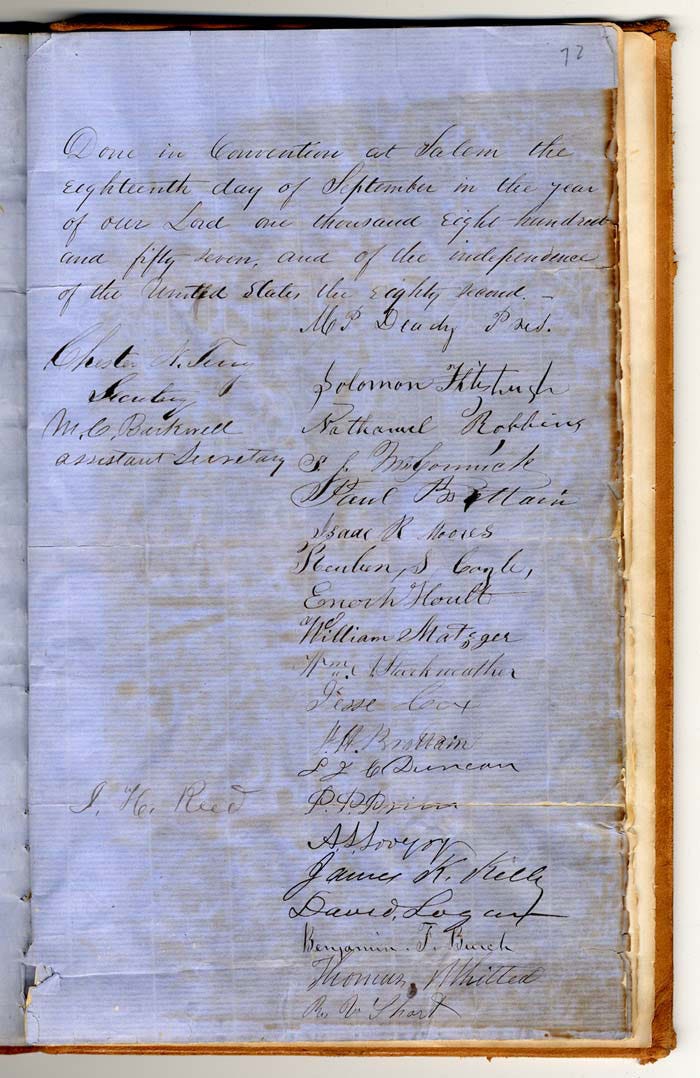 72
Done in Convention at Salem the
Eighteenth day of September in the year
of our Lord one thousand eight hundred
and fifty seven, and of the independence
of the United States the eighty second. –
M P Deady Pres.
Chester N. Terry
Secretary
M. C. Barkwell
assistant Secretary
Solomon Fitzhugh
Nathaniel Robbins
S J McCormick
Paul Brattain
Isaac R Moores
Reuben S Coyle,
Enoch Hoult
William Matzger
Wm H Starkweather
Jesse Cox
F. H. Brattain
L J C Duncan
P. P. Prim
A. L. Lovejoy
James K. Kelly
David Logan
Benjamin. F. Burch
Thomas Whitted
R. V Short
J. H. Reed